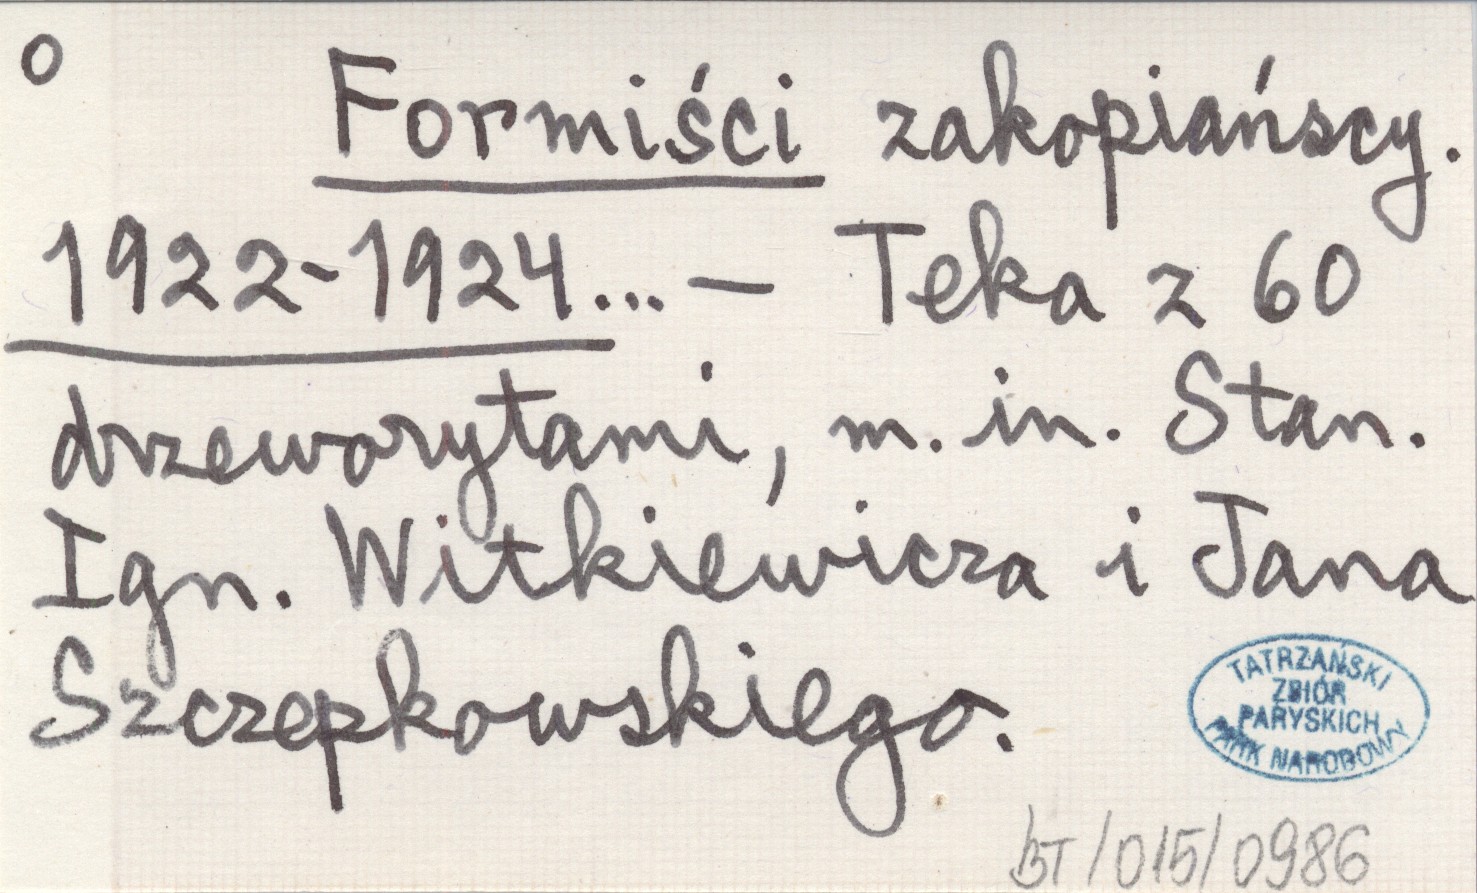 o
Formiści zakopiańscy.
1922-1924... — Teka z 60
drzeworytami, m. in. Stan.
Ign. Witkiewicza i Jana
Szczepkowskiego.
TATRZAŃSKI
ZBIÓR
PARYSKICH
PARK NARODOWY
BT/015/0986